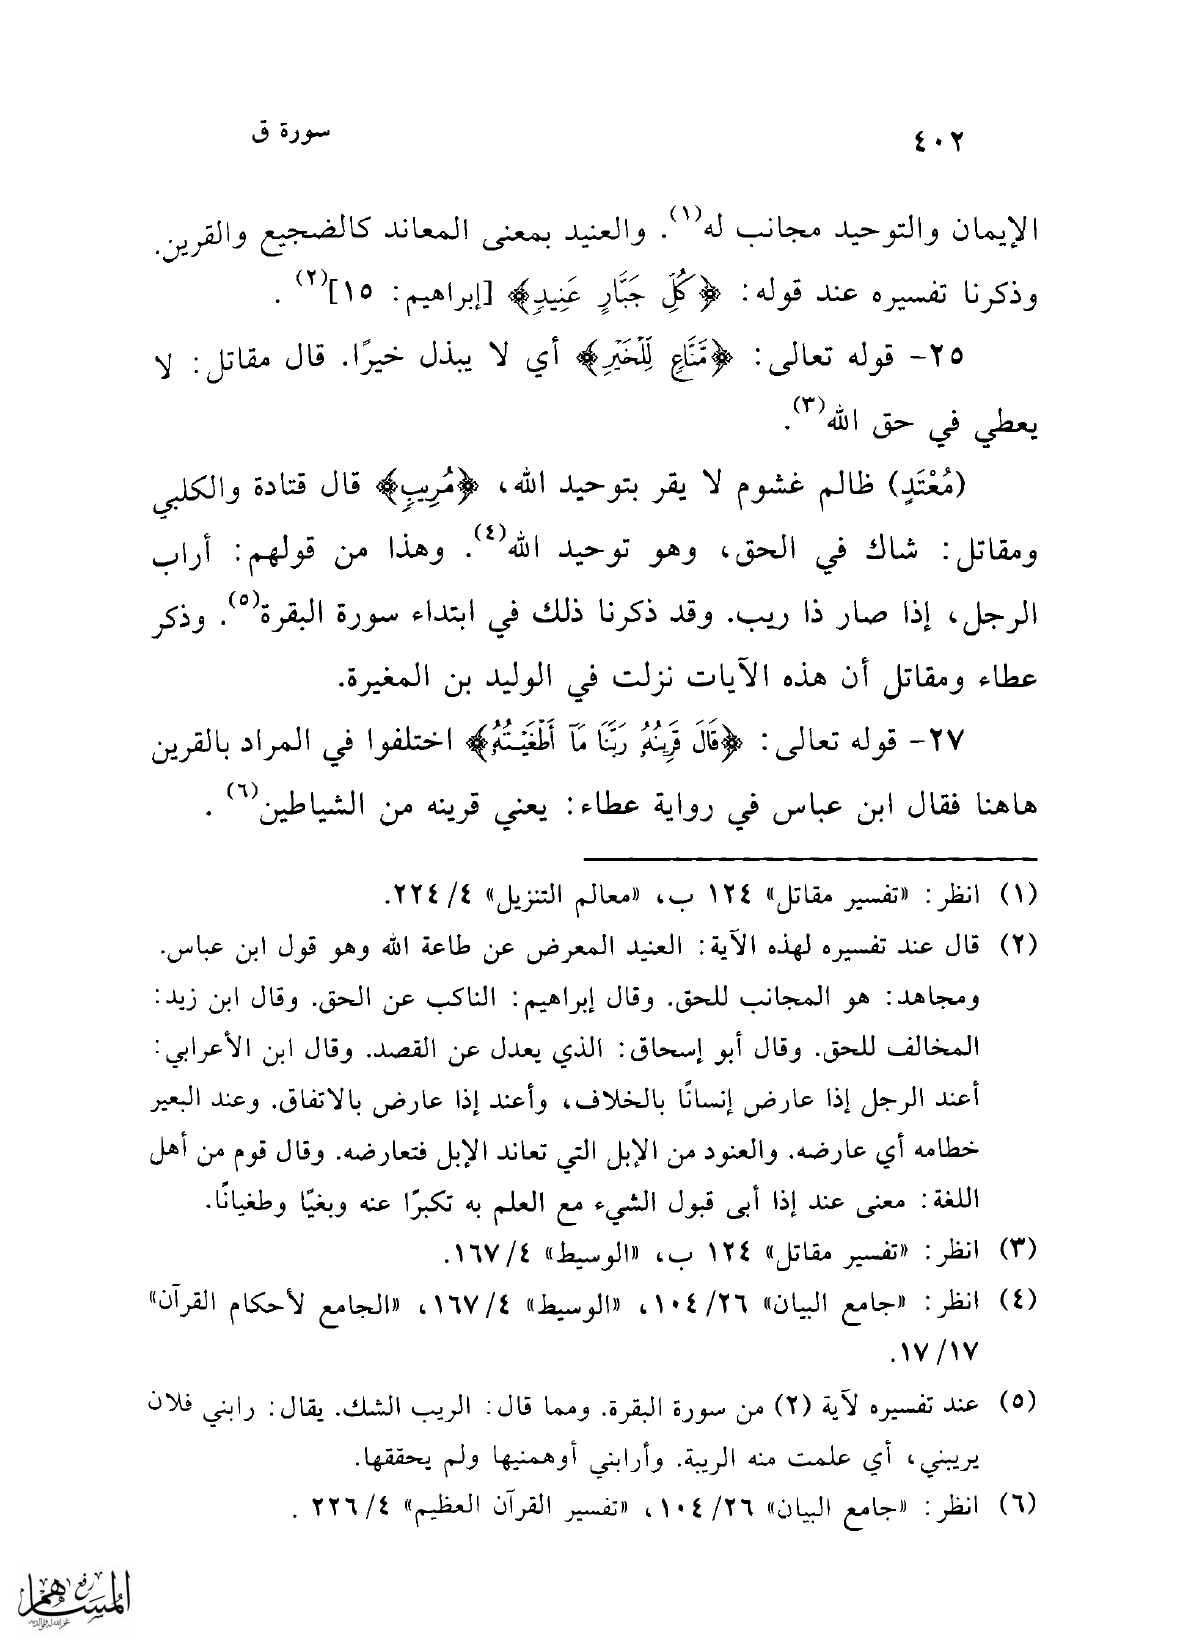 ٤٠٢ سورة ق
الإيمان والتوحيد مجانب له(١). والعنيد بمعنى المعاند كالضجيع والقرين.
وذكرنا تفسيره عند قوله: ﴿كُلِّ جَبَّارٍ عَنِيدٍ﴾ [إبراهيم: ١٥](٢) .
٢٥- قوله تعالى: ﴿مَّنَّاعٍ لِّلْخَيْرِ﴾ أي لا يبذل خيرًا. قال مقاتل: لا
يعطي في حق الله(٣).
(مُعْتَدٍ) ظالم غشوم لا يقر بتوحيد الله، ﴿مُرِيبٍ﴾ قال قتادة والكلبي
ومقاتل: شاك في الحق، وهو توحيد الله(٤). وهذا من قولهم: أراب
الرجل، إذا صار ذا ريب. وقد ذكرنا ذلك في ابتداء سورة البقرة(٥). وذكر
عطاء ومقاتل أن هذه الآيات نزلت في الوليد بن المغيرة.
٢٧- قوله تعالى: ﴿قَالَ قَرِينُهُۥ رَبَّنَا مَآ أَطْغَيْتُهُۥ﴾ اختلفوا في المراد بالقرين
هاهنا فقال ابن عباس في رواية عطاء: يعني قرينه من الشياطين(٦) .
(١) انظر: «تفسير مقاتل» ١٢٤ ب، «معالم التنزيل» ٤/ ٢٢٤.
(٢) قال عند تفسيره لهذه الآية: العنيد المعرض عن طاعة الله وهو قول ابن عباس.
ومجاهد: هو المجانب للحق. وقال إبراهيم: الناكب عن الحق. وقال ابن زيد:
المخالف للحق. وقال أبو إسحاق: الذي يعدل عن القصد. وقال ابن الأعرابي:
أعند الرجل إذا عارض إنسانًا بالخلاف، وأعند إذا عارض بالاتفاق. وعند البعير
خطامه أي عارضه. والعنود من الإبل التي تعاند الإبل فتعارضه. وقال قوم من أهل
اللغة: معنى عند إذا أبى قبول الشيء مع العلم به تكبرًا عنه وبغيًا وطغيانًا.
(٣) انظر: «تفسير مقاتل» ١٢٤ ب، «الوسيط» ٤/ ١٦٧.
(٤) انظر: «جامع البيان» ٢٦/ ١٠٤، «الوسيط» ٤/ ١٦٧، «الجامع لأحكام القرآن»
١٧/ ١٧.
(٥) عند تفسيره لآية (٢) من سورة البقرة. ومما قال: الريب الشك. يقال: رابني فلان
يريبني، أي علمت منه الريبة. وأرابني أوهمنيها ولم يحققها.
(٦) انظر: «جامع البيان» ٢٦/ ١٠٤، «تفسير القرآن العظيم» ٤/ ٢٢٦ .